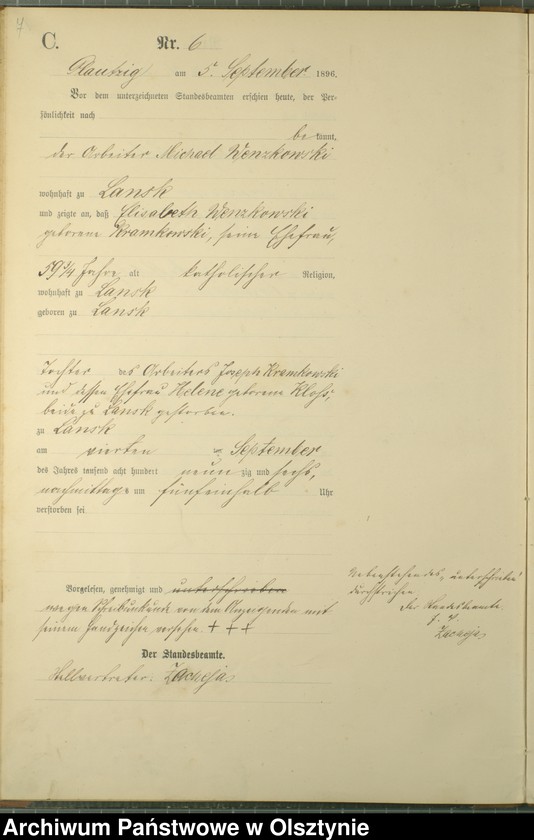 7
C. Nr. 6
Plautzig am 5. September 1896.
Vor dem unterzeichneten Standesbeamten erschien heute, der Per-
sönlichkeit nach
be kannt,
der Arbeiter Michael Wenzkowski
wohnhaft zu Lansk
und zeigte an, daß Elisabeth Wenzkowski
geborene Kramkowski, seine Ehefrau,
59 3/4 Jahre alt katholischer Religion,
wohnhaft zu Lansk
geboren zu Lansk
Tochter des Arbeiters Joseph Kramkowski
und dessen Ehefrau Helene geborene Klohs,
beide zu Lansk gestorben.
zu Lansk
am vierten September
des Jahres tausend acht hundert neun zig und sechs,
nachmittags um fünfeinhalb Uhr
verstorben sei
Vorgelesen, genehmigt und unterschrieben
wegen Schreibunkunde von dem Anzeigenden mit
seinem Handzeichen versehen + + +
Der Standesbeamte.
Stellvertreter: Zacheja
Nebenstehendes „unterschrieben"
durchstrichen
Der Standesbeamte
Zacheja
Archiwum Państwowe w Olsztynie